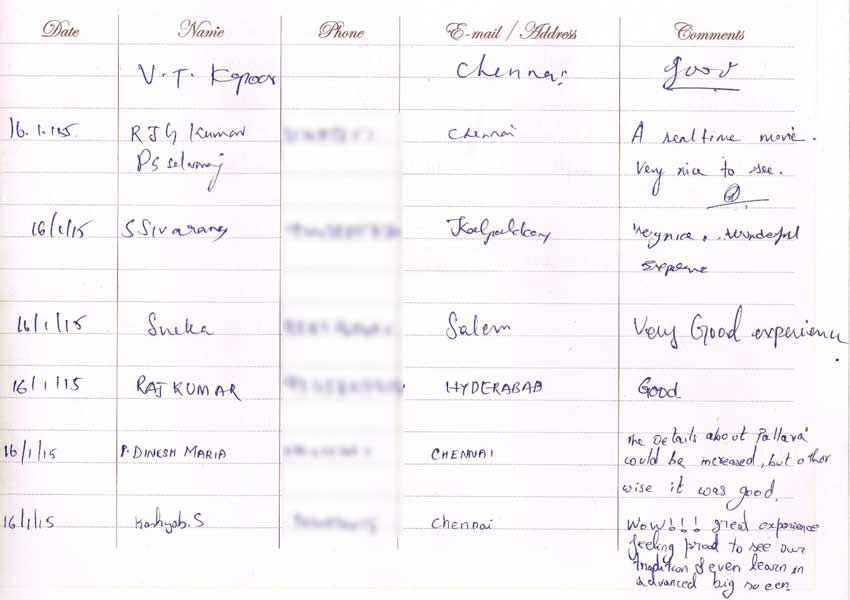 Date Name Phone E-mail / Address Comments
V. T. Kapoor Chennai good
16.1.15 RJG Kumar Chennai A realtime movie.
PS selvaraj Very nice to see.
16/1/15 S Sivaranj Very nice, Wonderful
16/1/15 Sneka Salem Very Good experience
16/1/15 RAJ KUMAR HYDERABAB Good
16/1/15 P. DINESH MARIA CHENNAI The Details about Pallava
could be increased, but other
wise it was good.
16/1/15 Kashyab. S Chennai WOW!!! great experience
feeling proud to see our
tradition & even learn in
advanced big screen